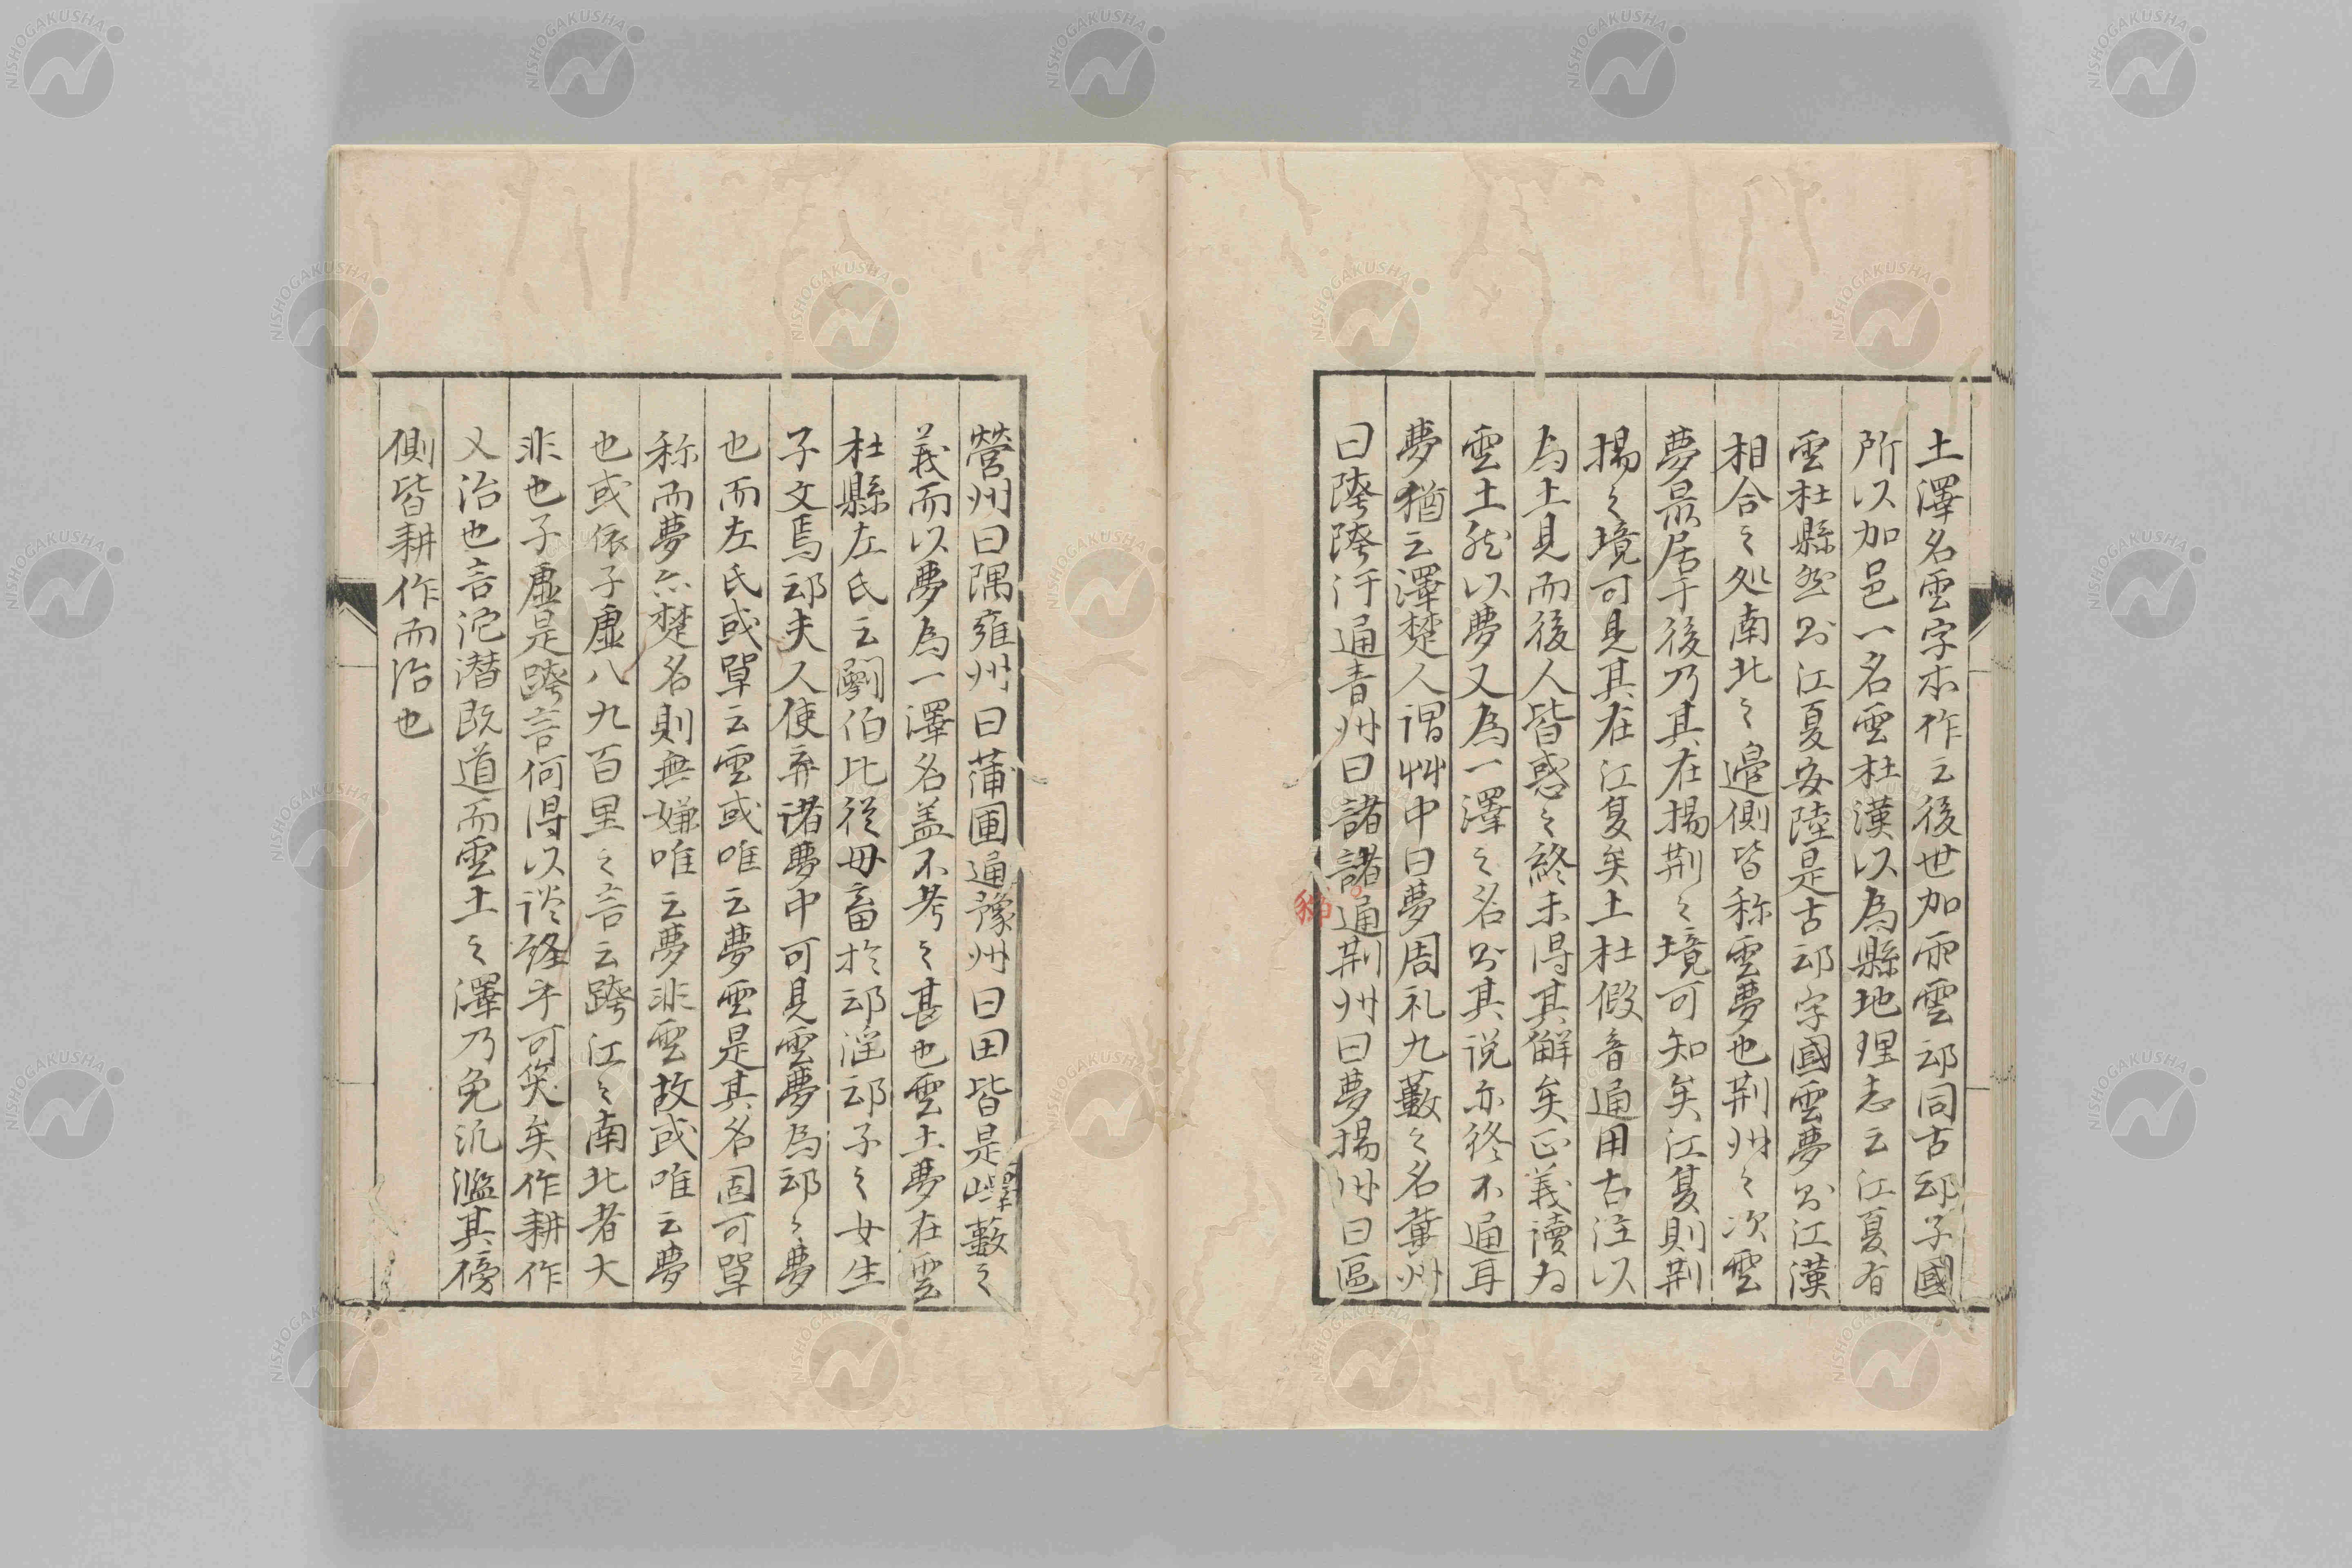 土澤名雲字本作云後世加雨雲䢵同古䢵子國
所以加邑一名雲杜漢以為縣地理志云江夏有
雲杜縣然則江夏安陸是古䢵字國雲夢則江漢
相合之処南北之邉側皆称雲夢也荆州之次雲
夢㫷居于後乃其在揚荆之境可知矣江夏則荆
揚之境可見其在江夏矣土杜假音通用古注以
為土見而後人皆惑之終未得其解矣正義讀為
雲土然以夢又為一澤之名則其说亦終不通耳
夢猶云澤楚人谓艸中曰夢周礼九藪之名冀州
曰䧄䧄汙通青州曰諸諸通荆州曰夢揚州曰區
豬
營州曰隅雍州曰蒲圃通豫州曰田皆是澤藪之
義而以夢為一澤名盖不考之甚也雲土夢在雲
杜縣左氏云鬬伯比從毋畜於䢵滛䢵子之女生
子文焉䢵夫人使弃诸夢中可見雲夢為䢵之夢
也而左氏或單云雲或唯云夢雲是其名固可單
称而夢亦楚名則無嫌唯云夢非雲故或唯云夢
也或依子虚八九百里之言云跨江之南北者大
非也子虚是跨言何得以谈經乎可笑矣作耕作
乂治也言沱潜既道而雲土之澤乃免氾濫其傍
側皆耕作而治也
NISHOGAKUSHA